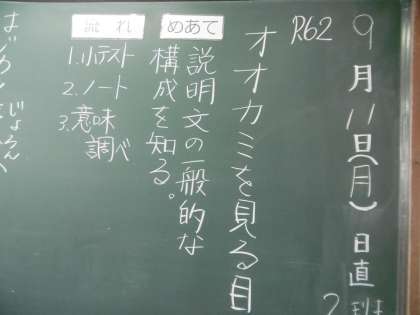 9月11日(月)日直
2班
R62
オオカミを見る目
めあて
説明文の一般的な
構成を知る。
流れ
1.小テスト
2.ノート
3.意味
調べ
はじめ
じょろん